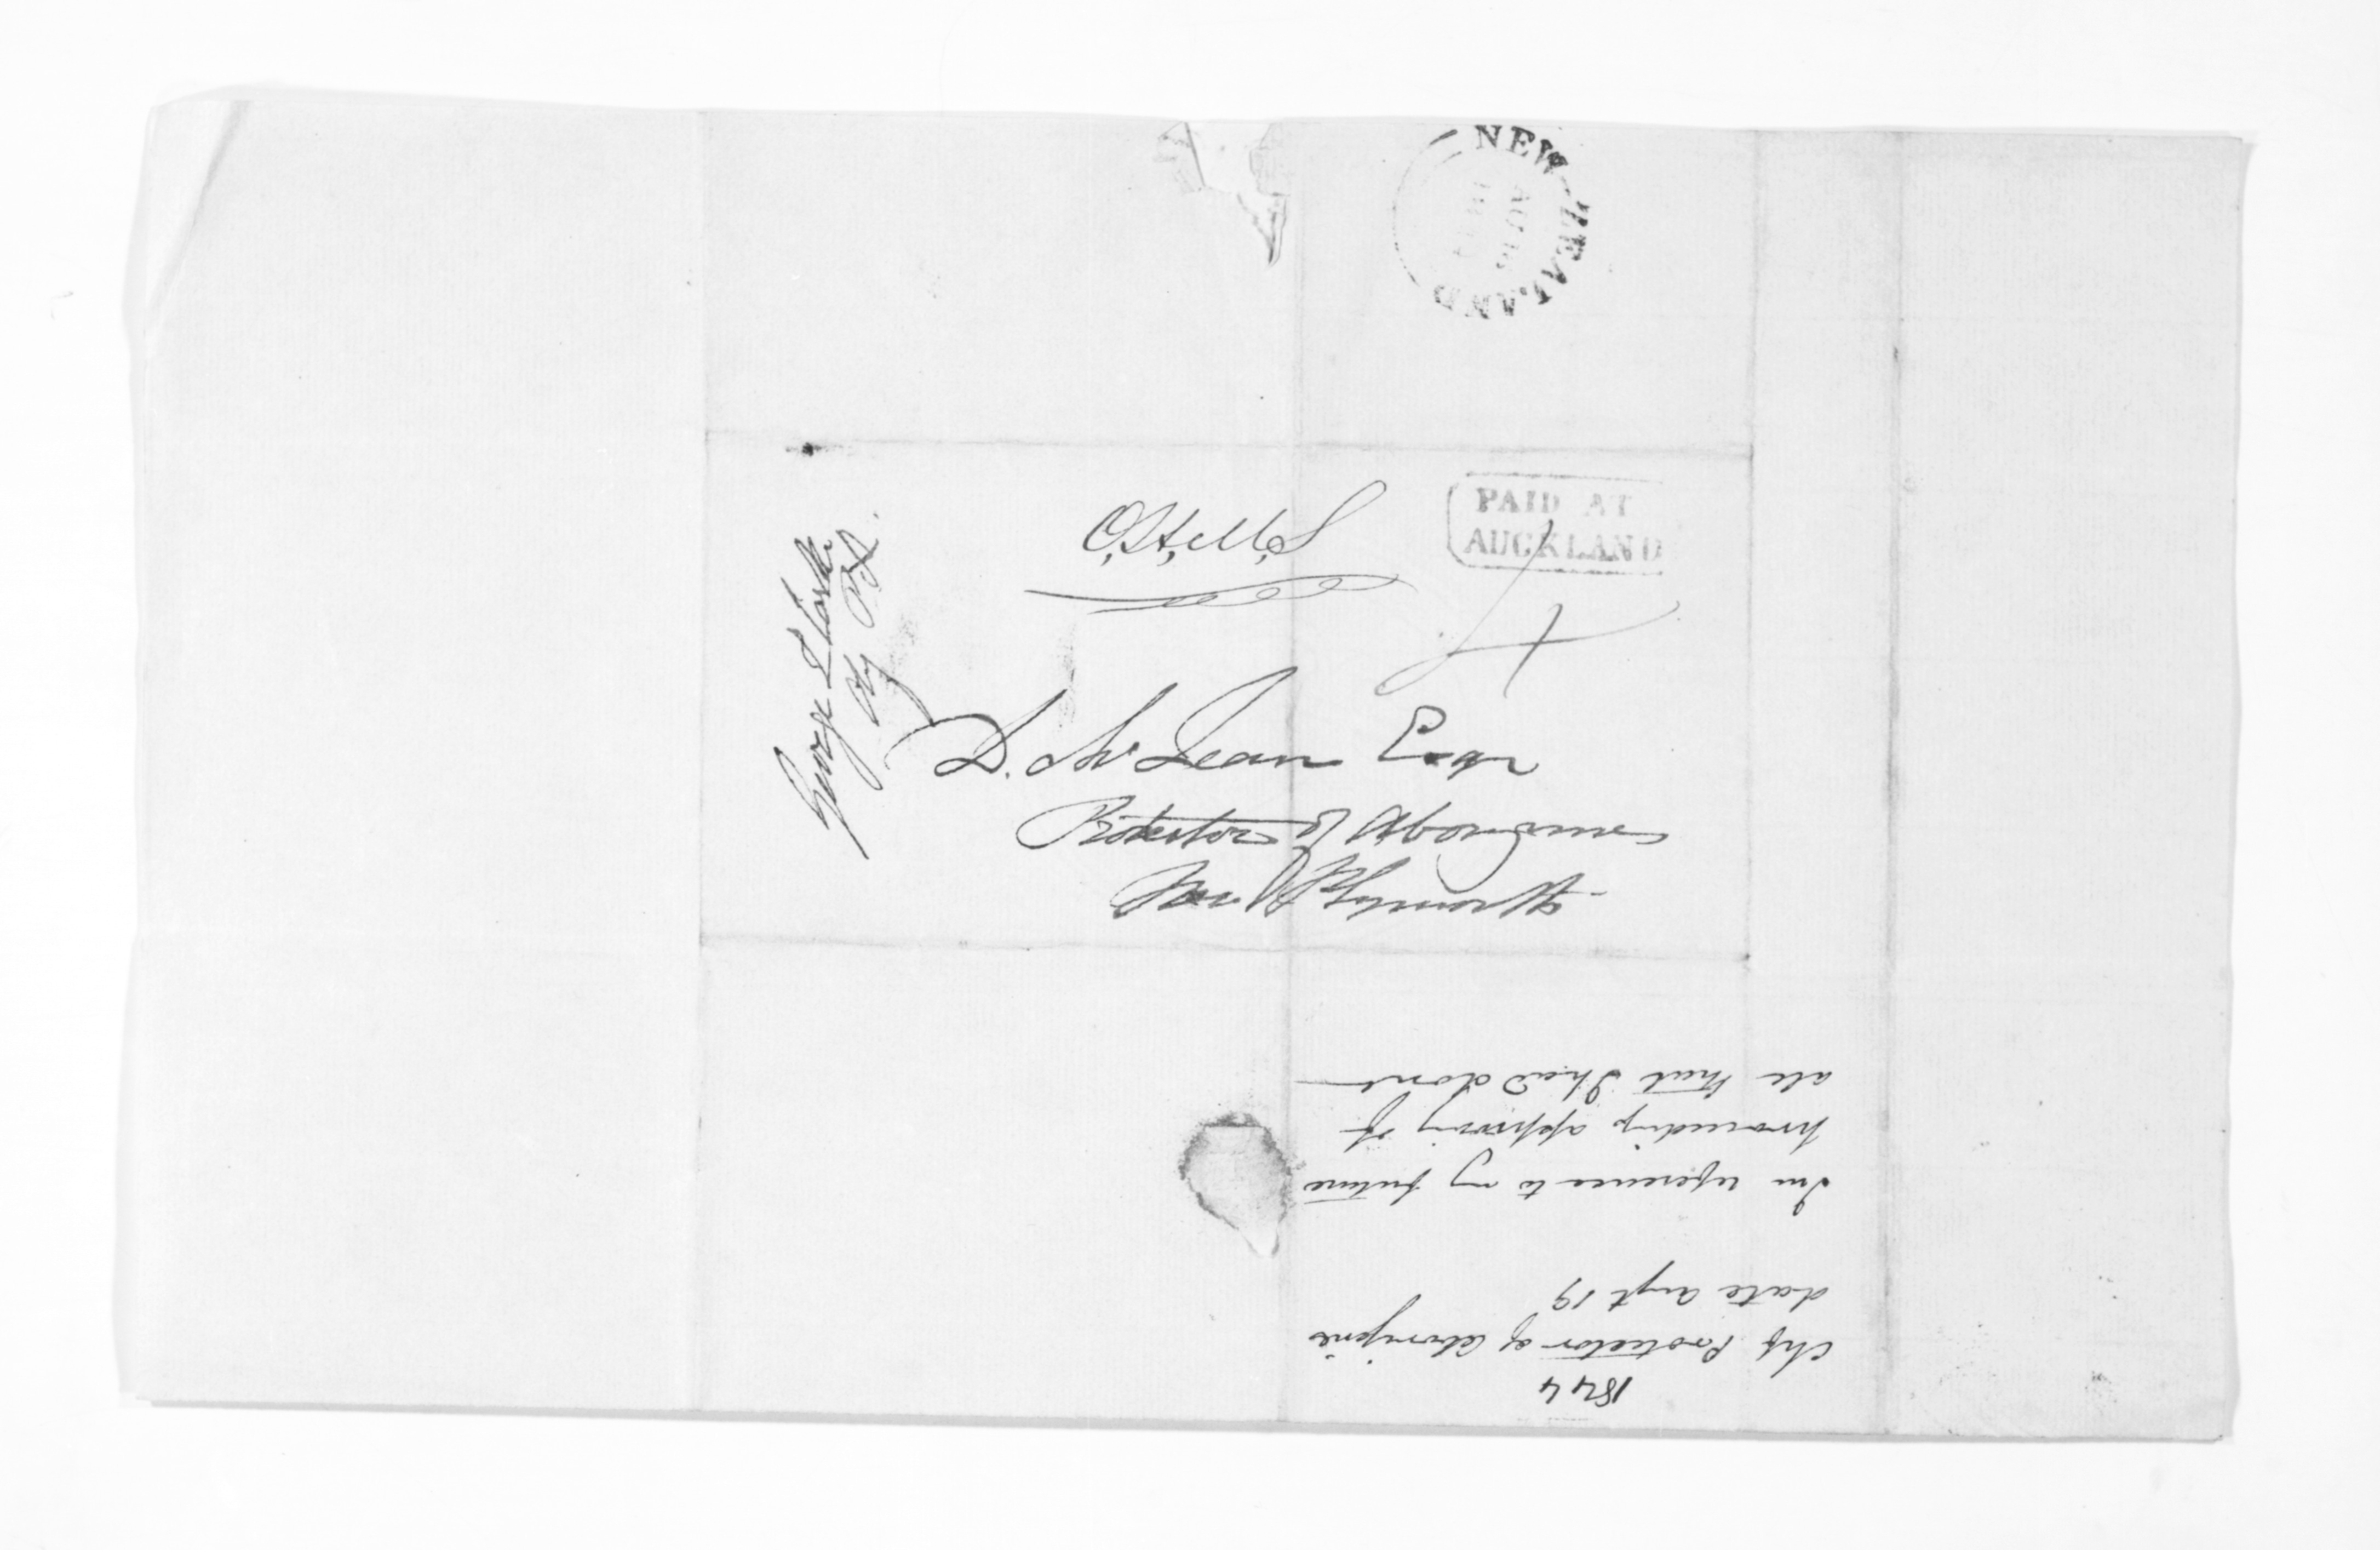 NEW ZEALAND
AU
PAID AT
AUCKLAND
4
O.H.M.S
George Clarke
D. McLean Esqr
Protector of Aborigines
New Plymouth
1844
Chf Protector of Aborigines
date Augt 19
In reference to my future
proceedings approving of
all that I had done